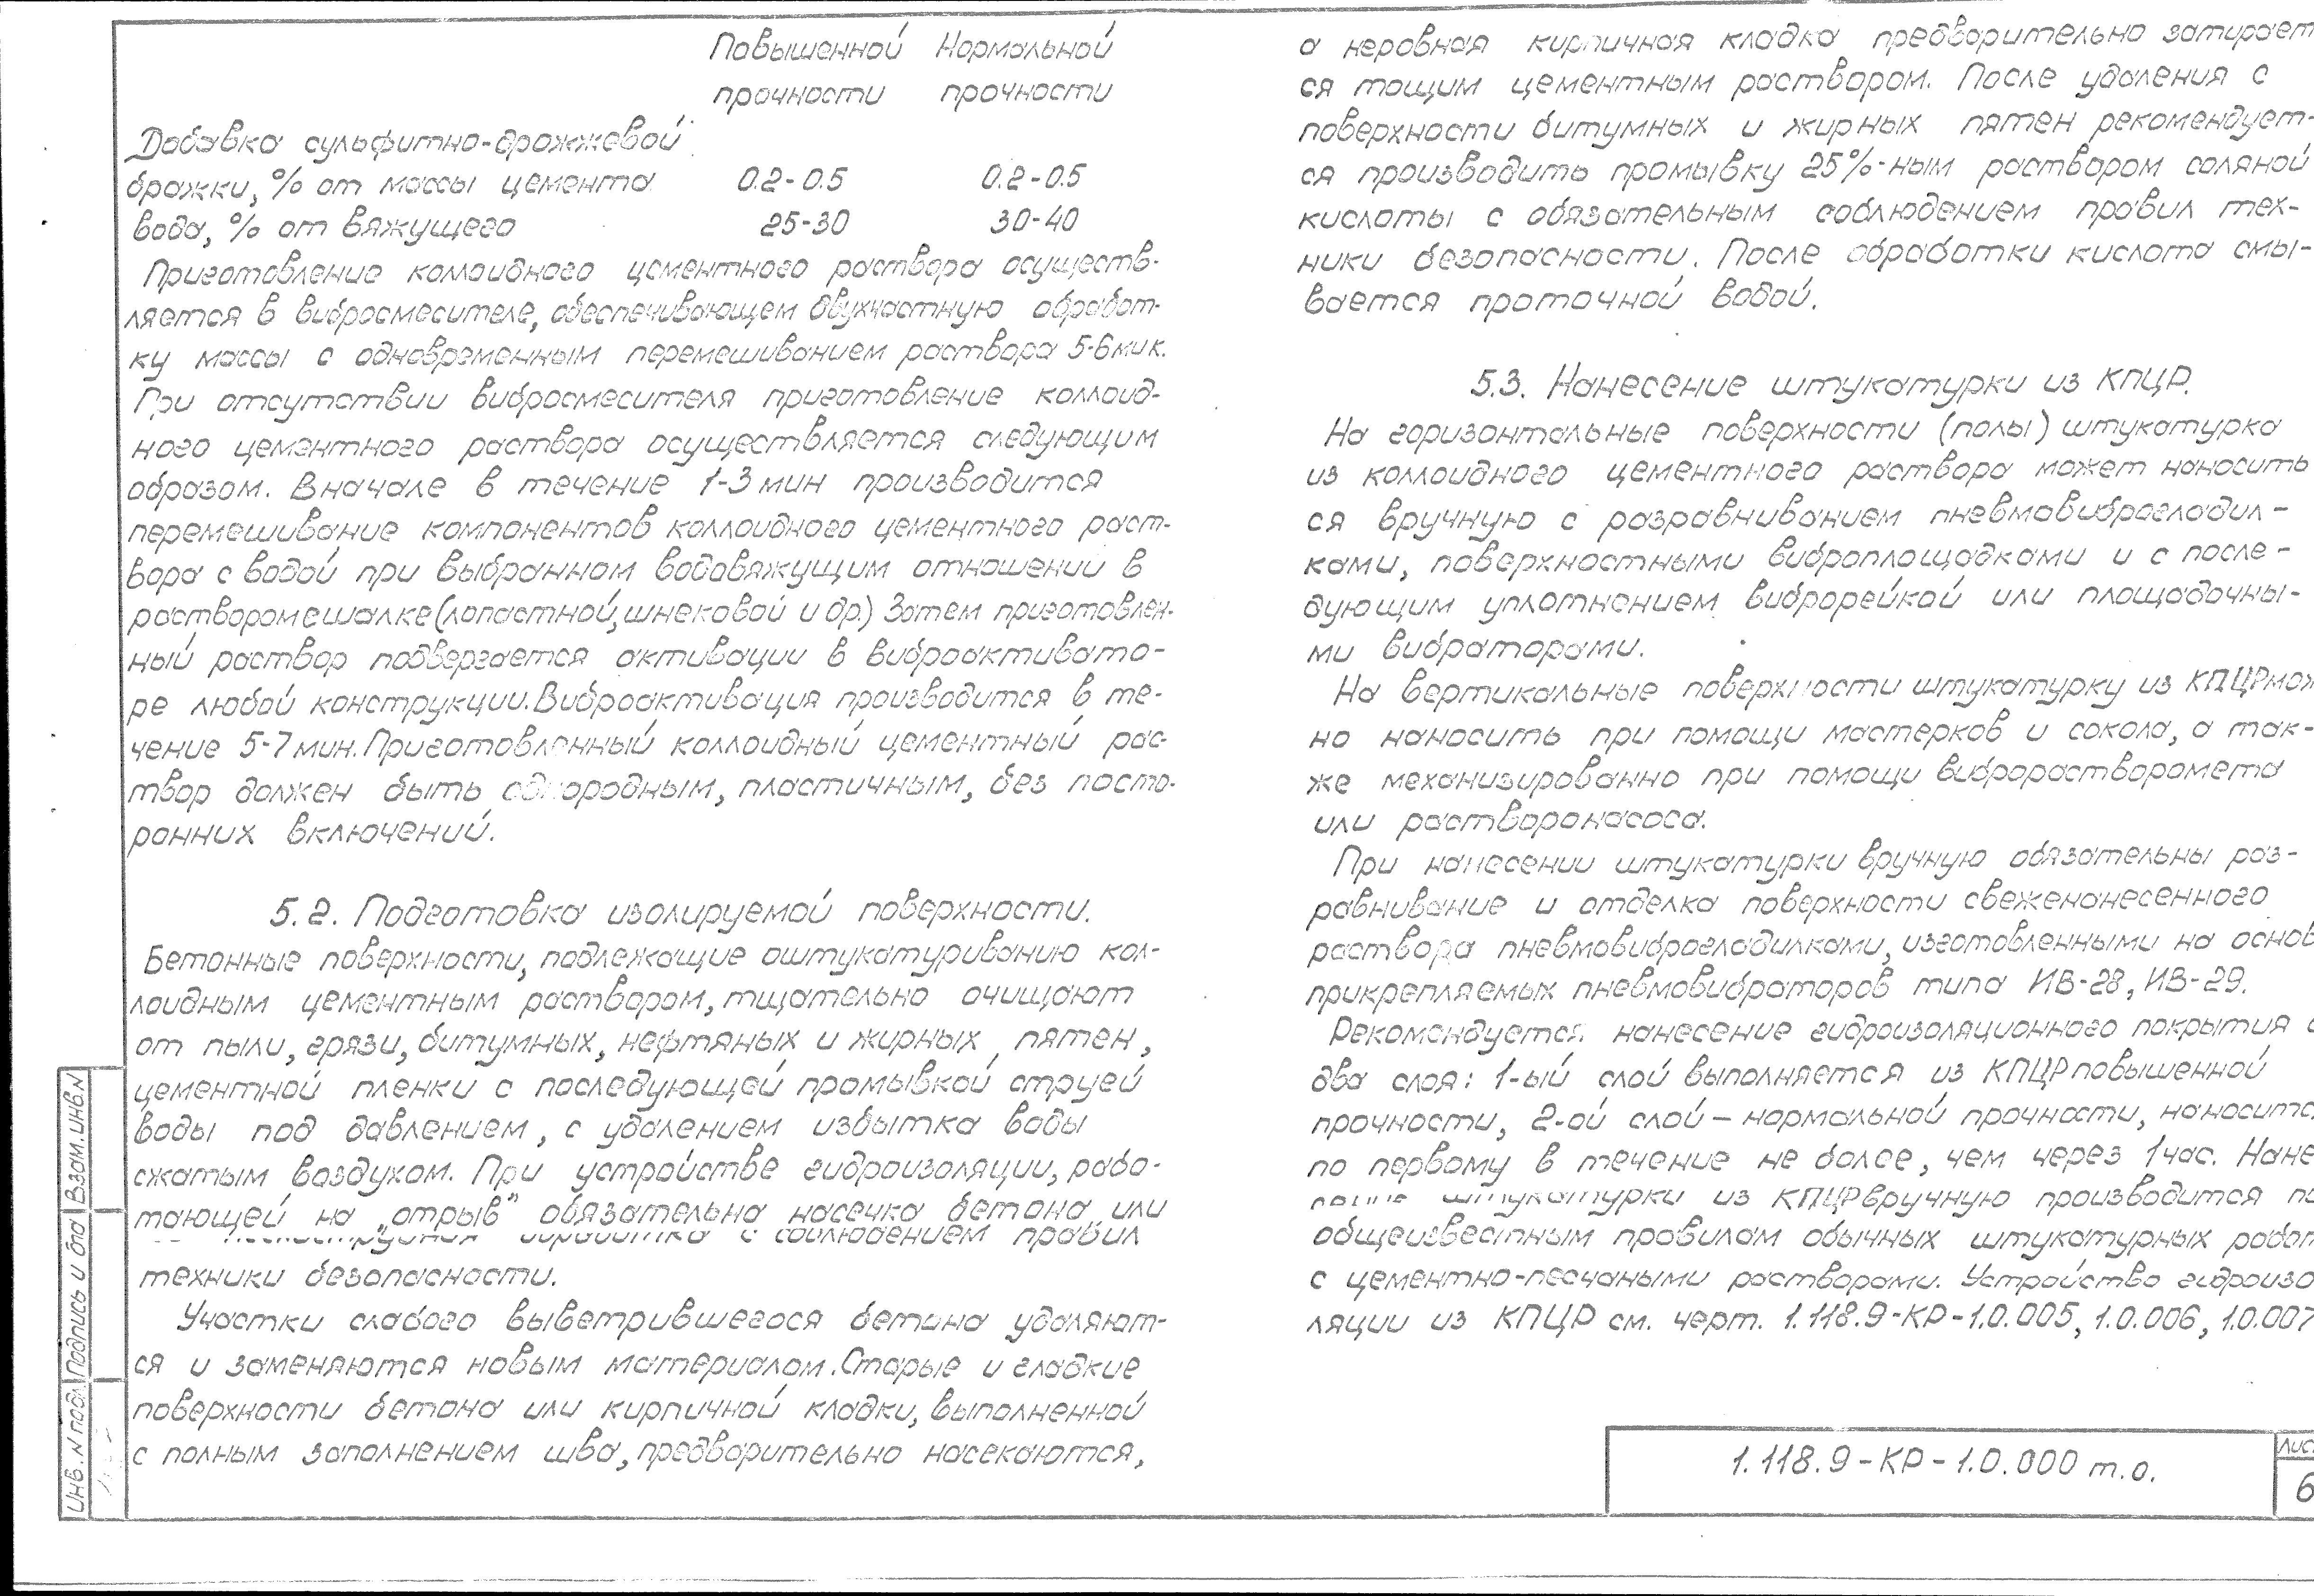 Повышенной Нормальной
прочности прочности
Добавка сульфитно-дрожжевой
бражки, % от массы цемента 0.2-0.5 0.2-0.5
вода, % от вяжущего 25-30 30-40
Приготовление коллоидного цементного раствора осуществ-
ляется в вибросмесителе, обеспечивающем двухчастную обработ-
ку массы с одновременным перемешиванием раствора 5-6 мин.
При отсутствии вибросмесителя приготовление коллоид-
ного цементного раствора осуществляется следующим
образом. Вначале в течение 1-3 мин производится
перемешивание компонентов коллоидного цементного раст-
вора с водой при выбранном водовяжущим отношении в
растворомешалке (лопастной, шнековой и др.) Затем приготовлен-
ный раствор подвергается активации в виброактивато-
ре любой конструкции. Виброактивация производится в те-
чение 5-7 мин. Приготовленный коллоидный цементный рас-
твор должен быть однородным, пластичным, без посто-
ронних включений.
5.2. Подготовка изолируемой поверхности.
Бетонные поверхности, подлежащие оштукатуриванию кол-
лоидным цементным раствором, тщательно очищают
от пыли, грязи, битумных, нефтяных и жирных пятен,
цементной пленки с последующей промывкой струей
воды под давлением, с удалением избытка воды
сжатым воздухом. При устройстве гидроизоляции, рабо-
тающей на „отрыв" обязательна насечка бетона или
обработка с соблюдением правил
техники безопасности.
Участки слабого выветрившегося бетона удаляют-
ся и заменяются новым материалом. Старые и гладкие
поверхности бетона или кирпичной кладки, выполненной
с полным заполнением шва, предварительно насекаются,
а неровная кирпичная кладка предварительно затирает
ся тощим цементным раствором. После удаления с
поверхности битумных и жирных пятен рекомендует-
ся производить промывку 25%-ным раствором соляной
кислоты с обязательным соблюдением правил тех-
ники безопасности. После обработки кислота смы-
вается проточной водой.
5.3. Нанесение штукатурки из КПЦР.
На горизонтальные поверхности (полы) штукатурка
из коллоидного цементного раствора может наносить
ся вручную с разравниванием пневмовиброгладил-
ками, поверхностными виброплощадками и с после-
дующим уплотнением виброрейкой или площадочны-
ми вибраторами.
На вертикальные поверхности штукатурку из КПЦР мож
но наносить при помощи мастерков и сокола, а так-
же механизированно при помощи виброрастворомета
или растворонасоса.
При нанесении штукатурки вручную обязательны раз-
равнивание и отделка поверхности свеженанесенного
раствора пневмовиброгладилками, изготовленными на основ
прикрепляемых пневмовибраторов типа ИВ-28, ИВ-29.
Рекомендуется нанесение гидроизоляционного покрытия
два слоя: 1-ый слой выполняется из КПЦР повышенной
прочности, 2-ой слой - нормальной прочности, наносит
по первому в течение не более, чем через 1 час. Нане
штукатурки из КПЦР вручную производится
общеизвестным правилам обычных штукатурных работ
с цементно-песчаными растворами. Устройство гидроизо
ляции из КПЦР см. черт. 1.118.9-КР-1.0.005, 1.0.006, 1.0.007
Инв. N подл. Подпись и дта Взам. инв. N
1.118.9-КР-1.0.000 т.о.
Лис
6